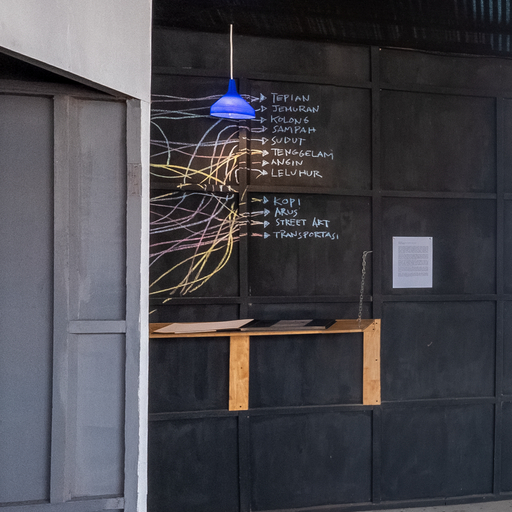 TEPIAN
JEMURAN
KOLONG
SAMPAH
SUDUT
TENGGELAM
ANGIN
LELUHUR
KOPI
ARUS
STREET ART
TRANSPORTASI